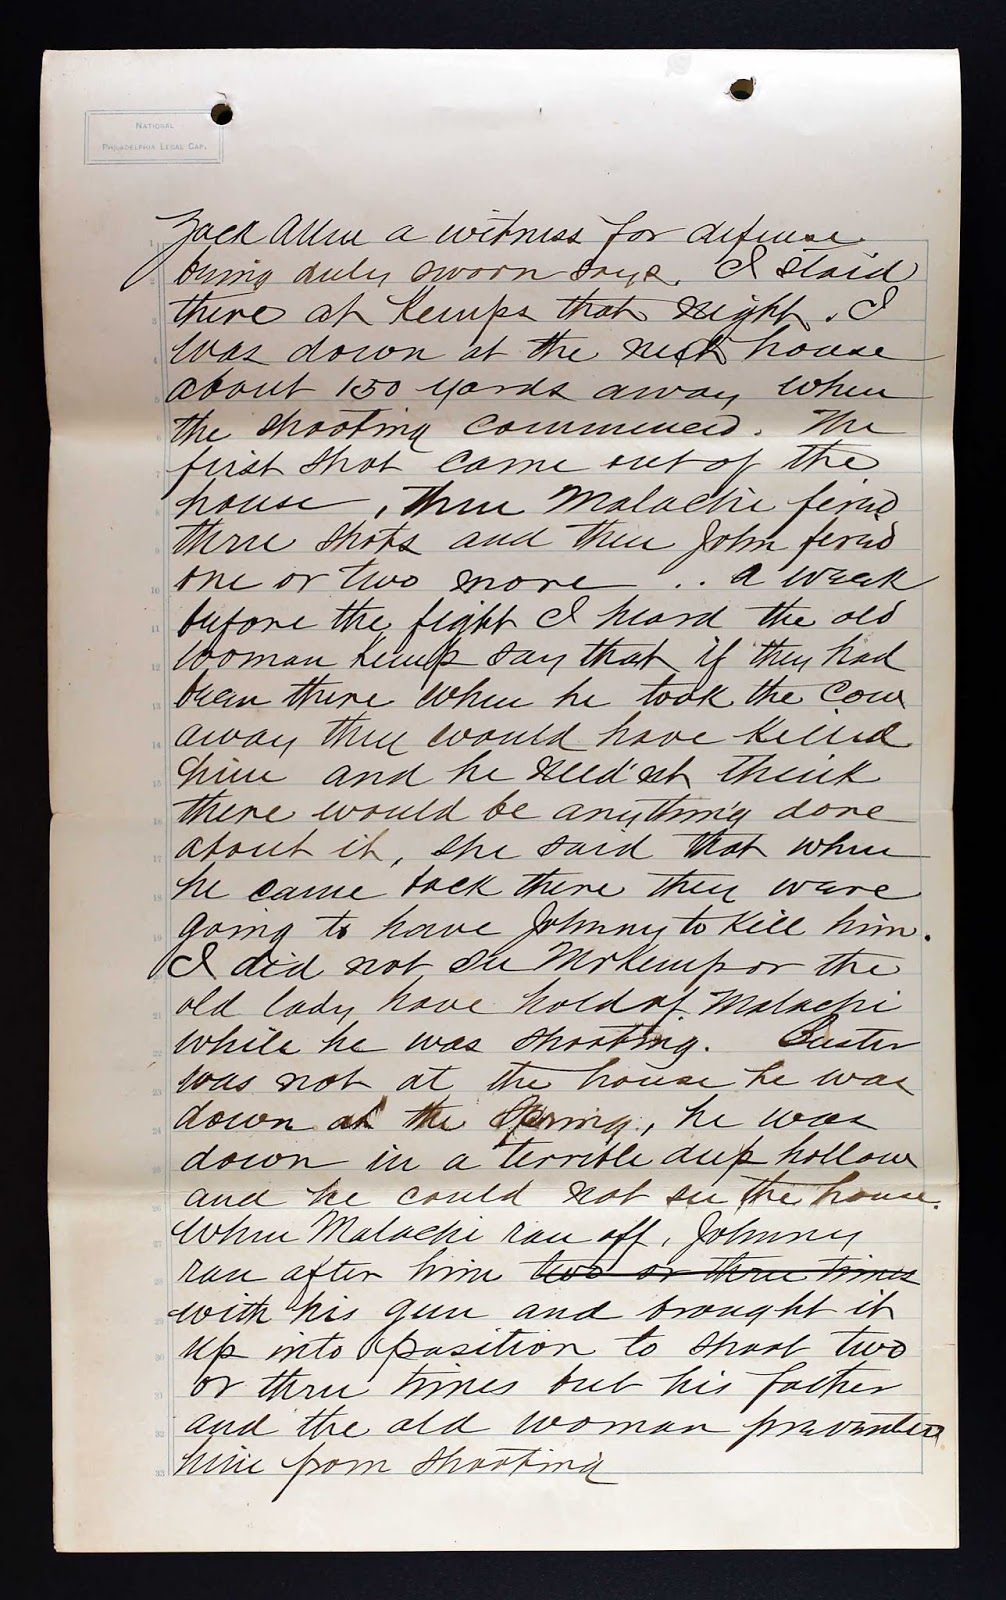 NATIONAL
PHILADELPHIA LEGAL CAP.
Zack Allen a witness for defense
being duly sworn says. I staid
there at Kemps that night. I
was down at the next house
about 150 yards away when
the shooting commenced. The
first shot came out of the
house, then Malachi fired
three shots and then John fired
one or two more .. a week
before the fight I heard the old
woman Kemp say that if they had
been there when he took the cow
away they would have killed
him and he need'nt think
there would be anything done
about it, she said that when
he came back there they ware
going to have Johnny to kill him.
I did not see Mr Kemp or the
old lady have hold of Malachi
while he was shooting. Buster
was not at the house he was
down at the Spring, he was
down in a terrible deep hollow
and he could not see the house.
When Malachi ran off, Johnny
ran after him two or three times
with his gun and brought it
up into position to shoot two
or three times but his father
and the old woman prevented
him from shooting